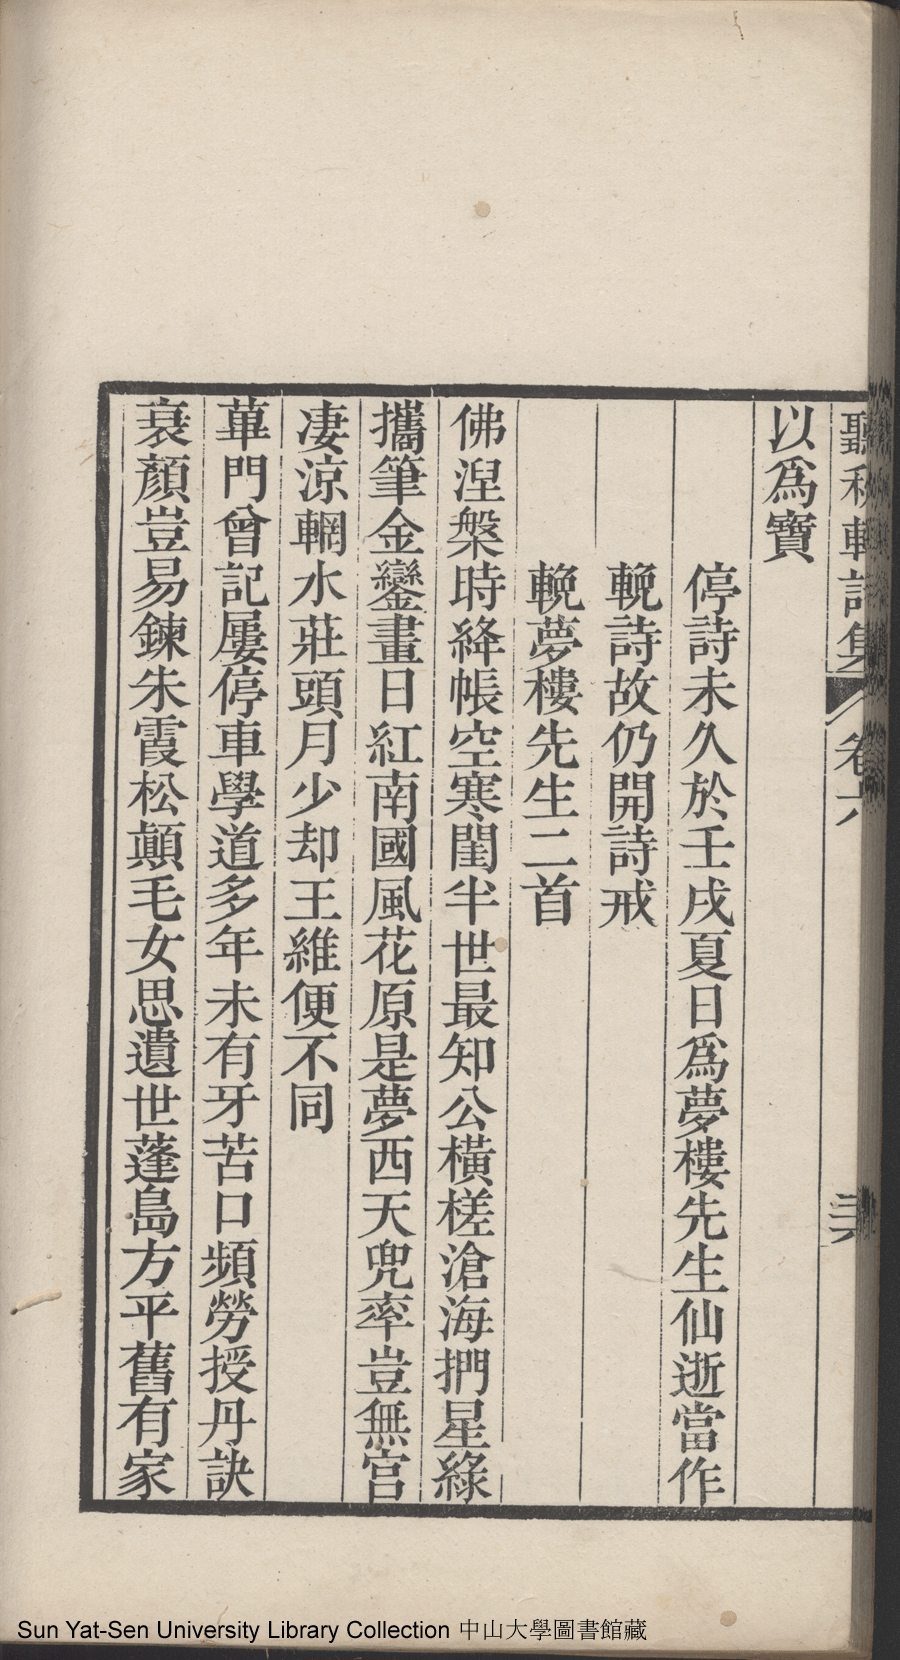 聽秋軒詩集 卷六
以爲寶
停詩未久於壬戌夏日爲夢樓先生仙逝當作
輓詩故仍開詩戒
輓夢樓先生二首
佛涅槃時絳帳空寒閨半世最知公橫槎滄海捫星綠
攜筆金鑾畫日紅南國風花原是夢西天兜率豈無宮
凄涼輞水莊頭月少却王維便不同
蓽門曾記屢停車學道多年未有牙苦口頻勞授丹訣
衰顏豈易鍊朱霞松顛毛女思遺世蓬島方平舊有家
Sun Yat-Sen University Library Collection 中山大學圖書館藏